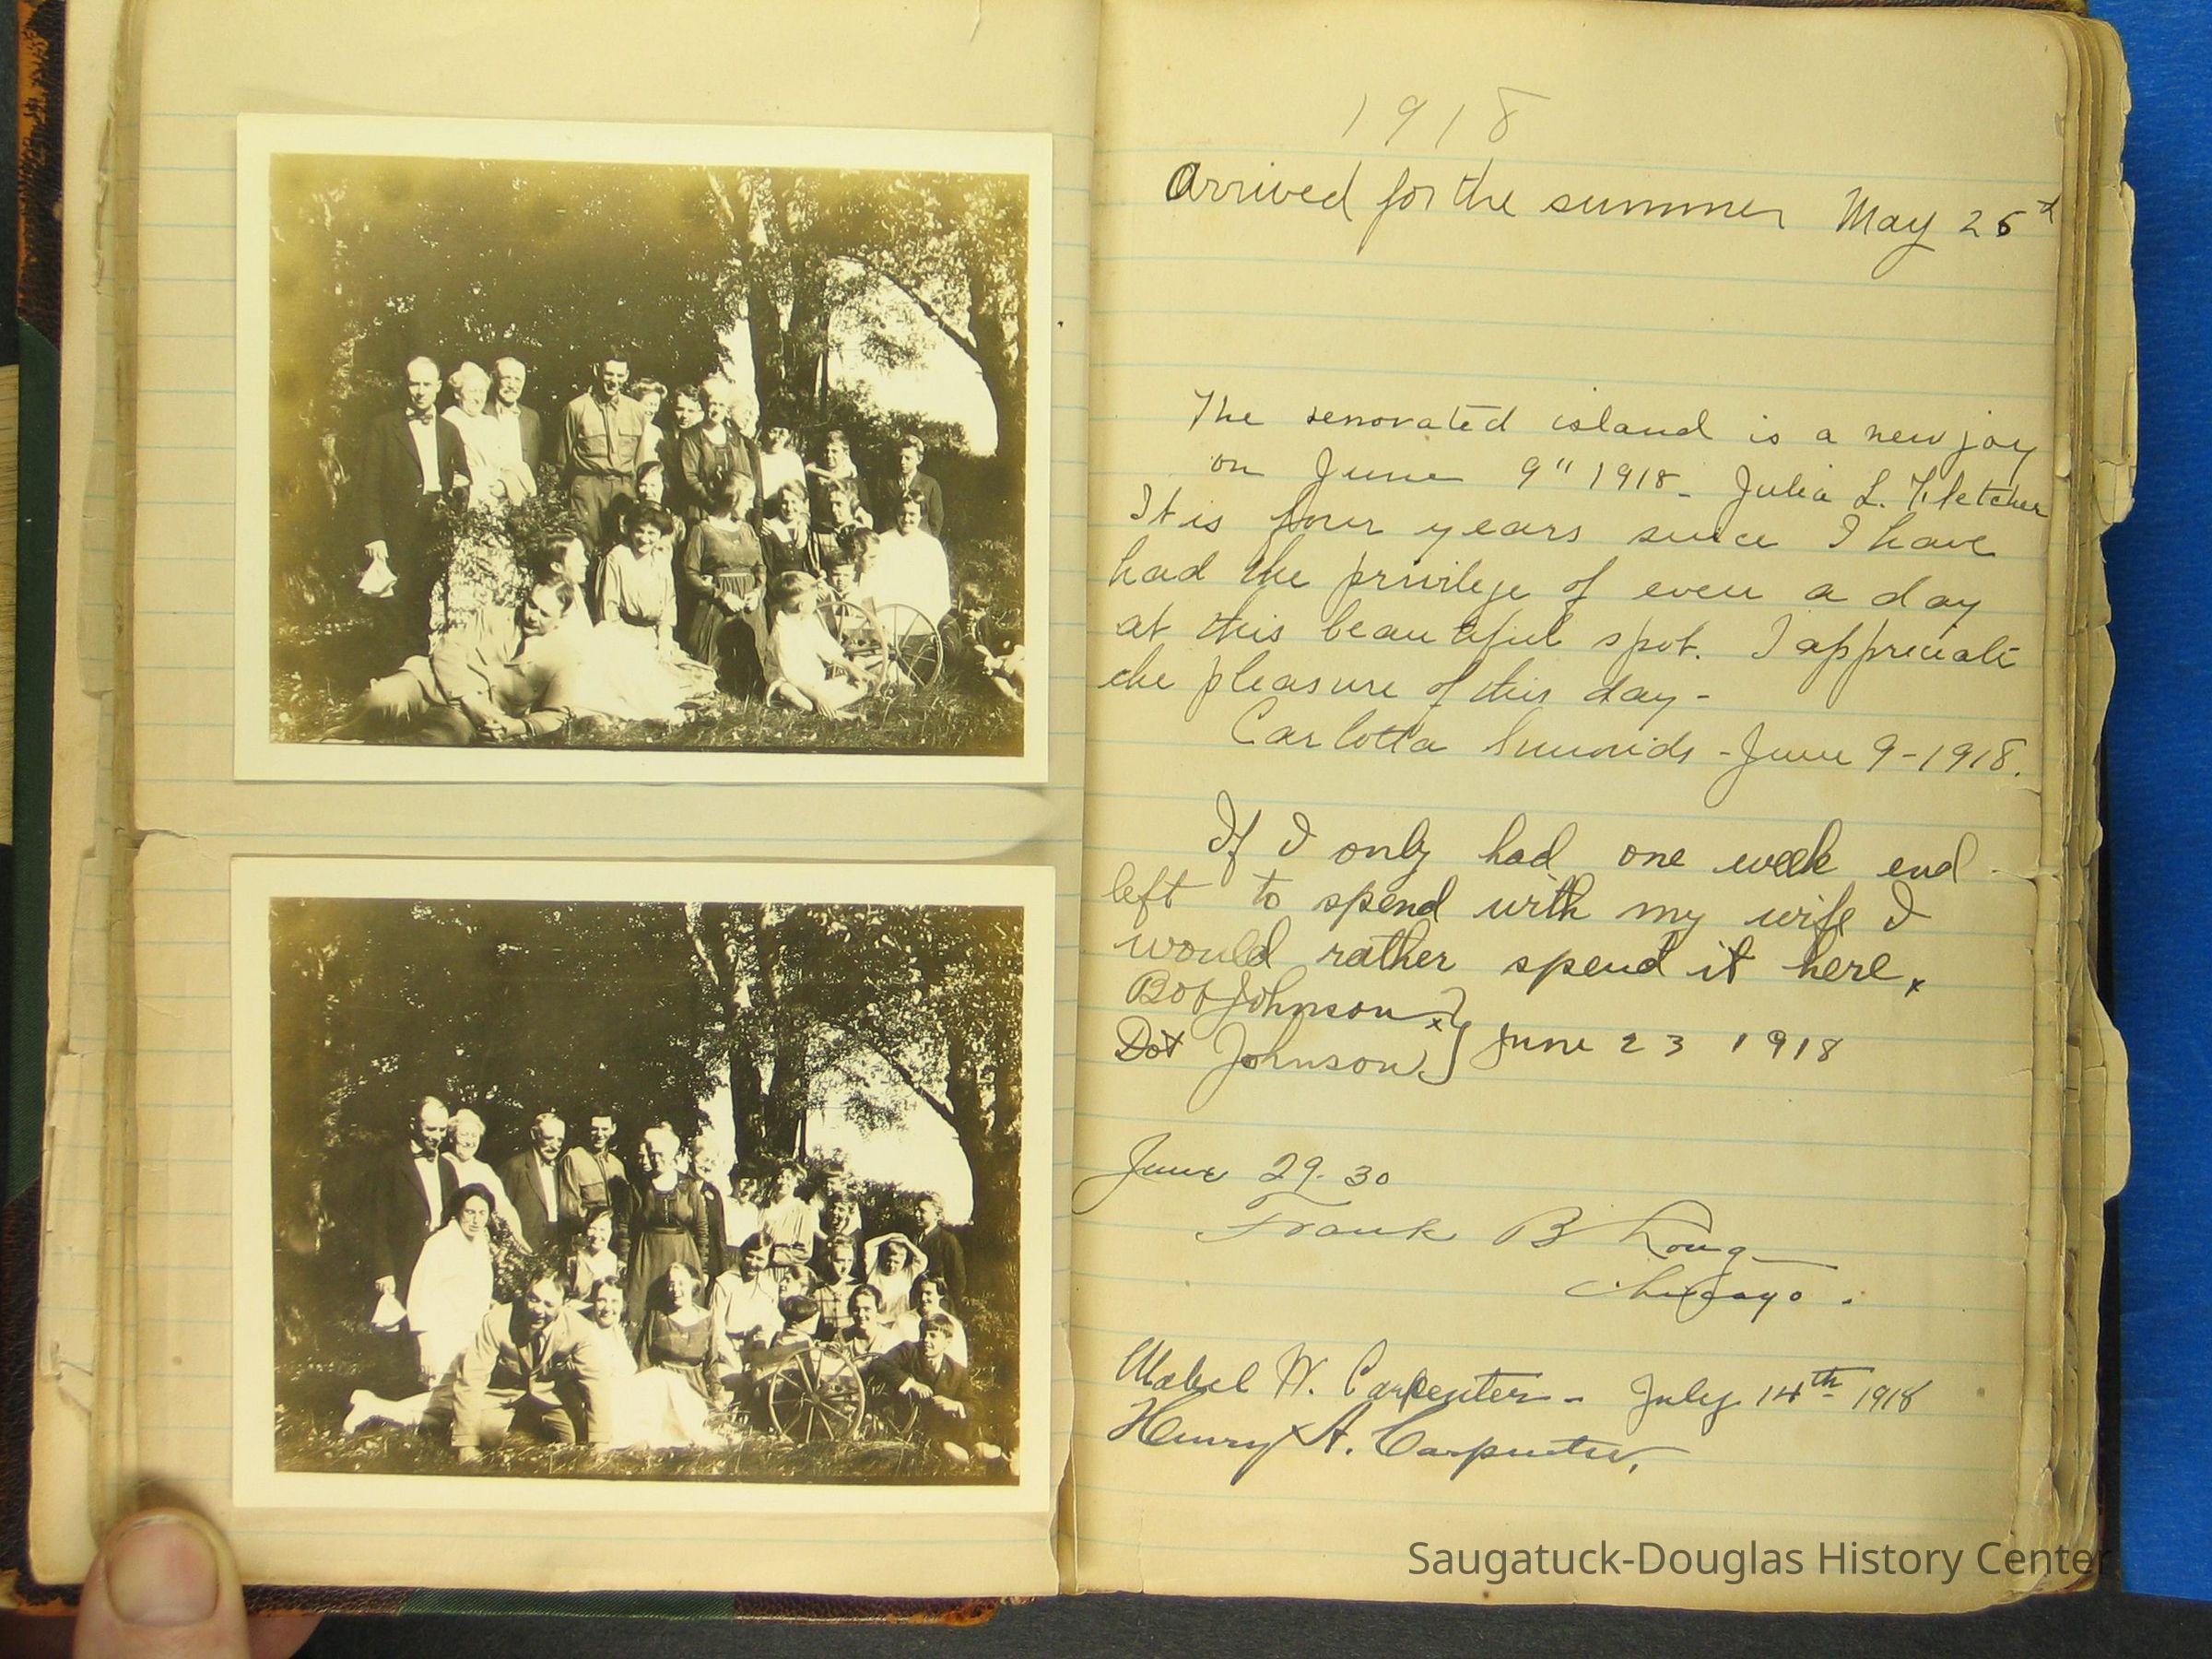 1918
Arrived for the summer May 25th
The renovated island is a new joy
on June 9" 1918- Julia L. Fletcher
It is four years since I have
had the privilege of even a day
at this beautiful spot. I appreciate
the pleasure of this day-
Carlotta Simonds - June 9-1918.
If I only had one week end
left to spend with my wife I
would rather spend it here.
Bob Johnson
Dot Johnson June 23 1918
June 29-30
Frank B Long
Chicago.
Mabel W. Carpenter - July 14th 1918
Henry A. Carpenter.
Saugatuck-Douglas History Center